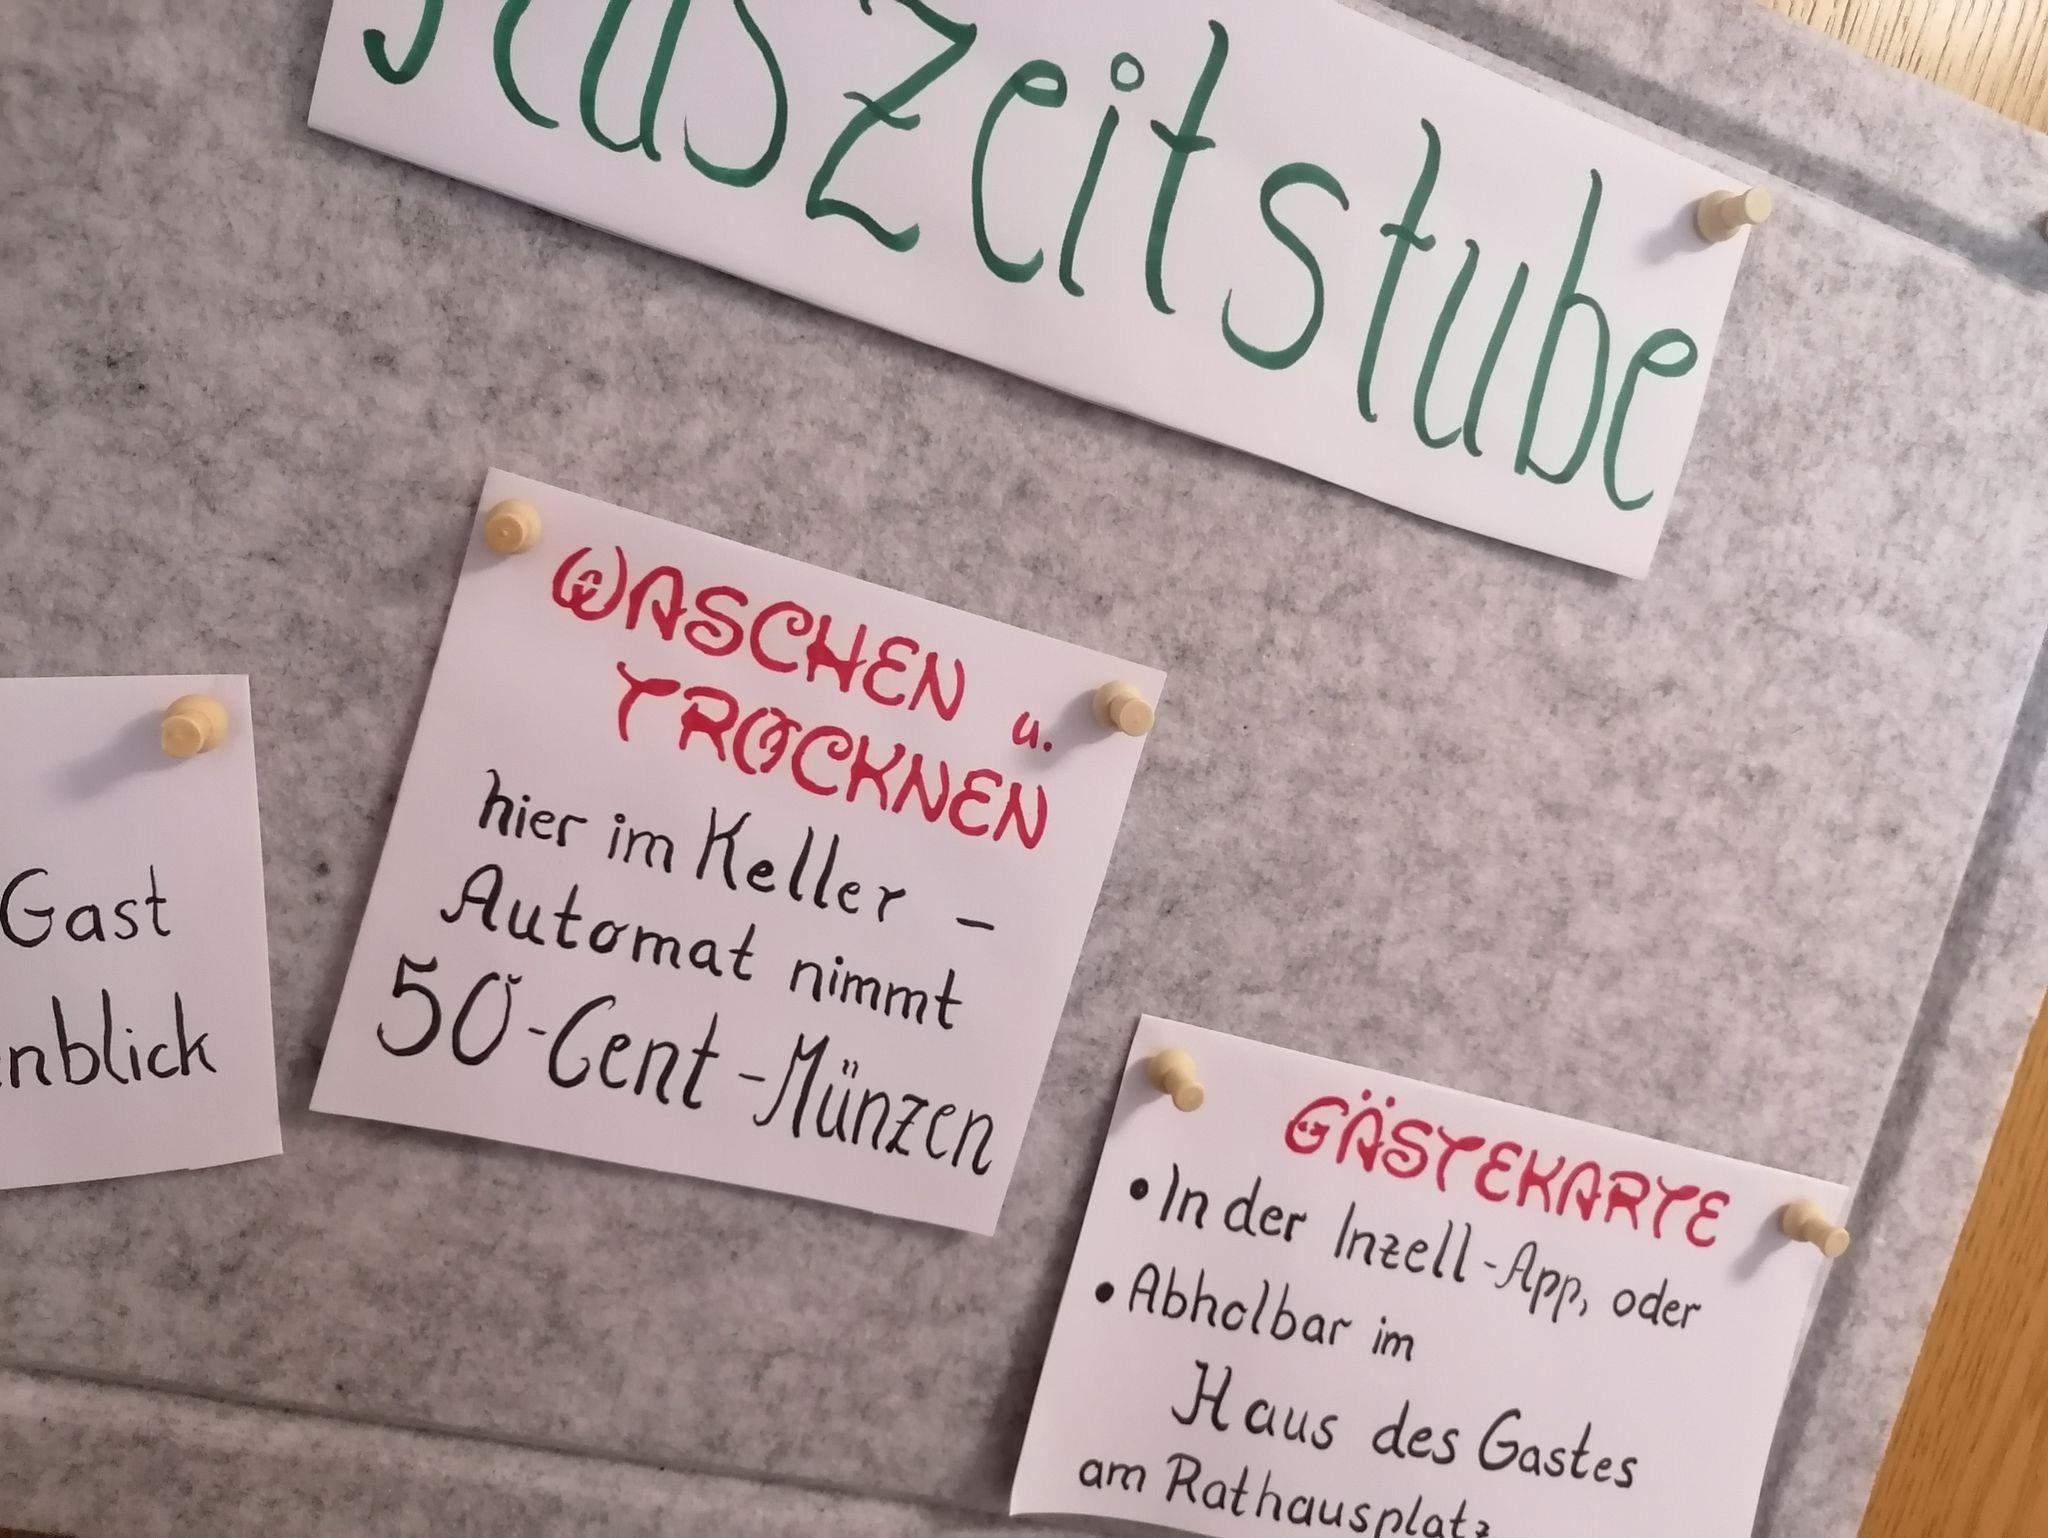 Auszeitstube
WASCHEN u.
TROCKNEN
hier im Keller –
Automat nimmt
50-Cent-Münzen
Gast
nblick
GÄSTEKARTE
• In der Inzell-App, oder
• Abholbar im
Haus des Gastes
am Rathausplatz